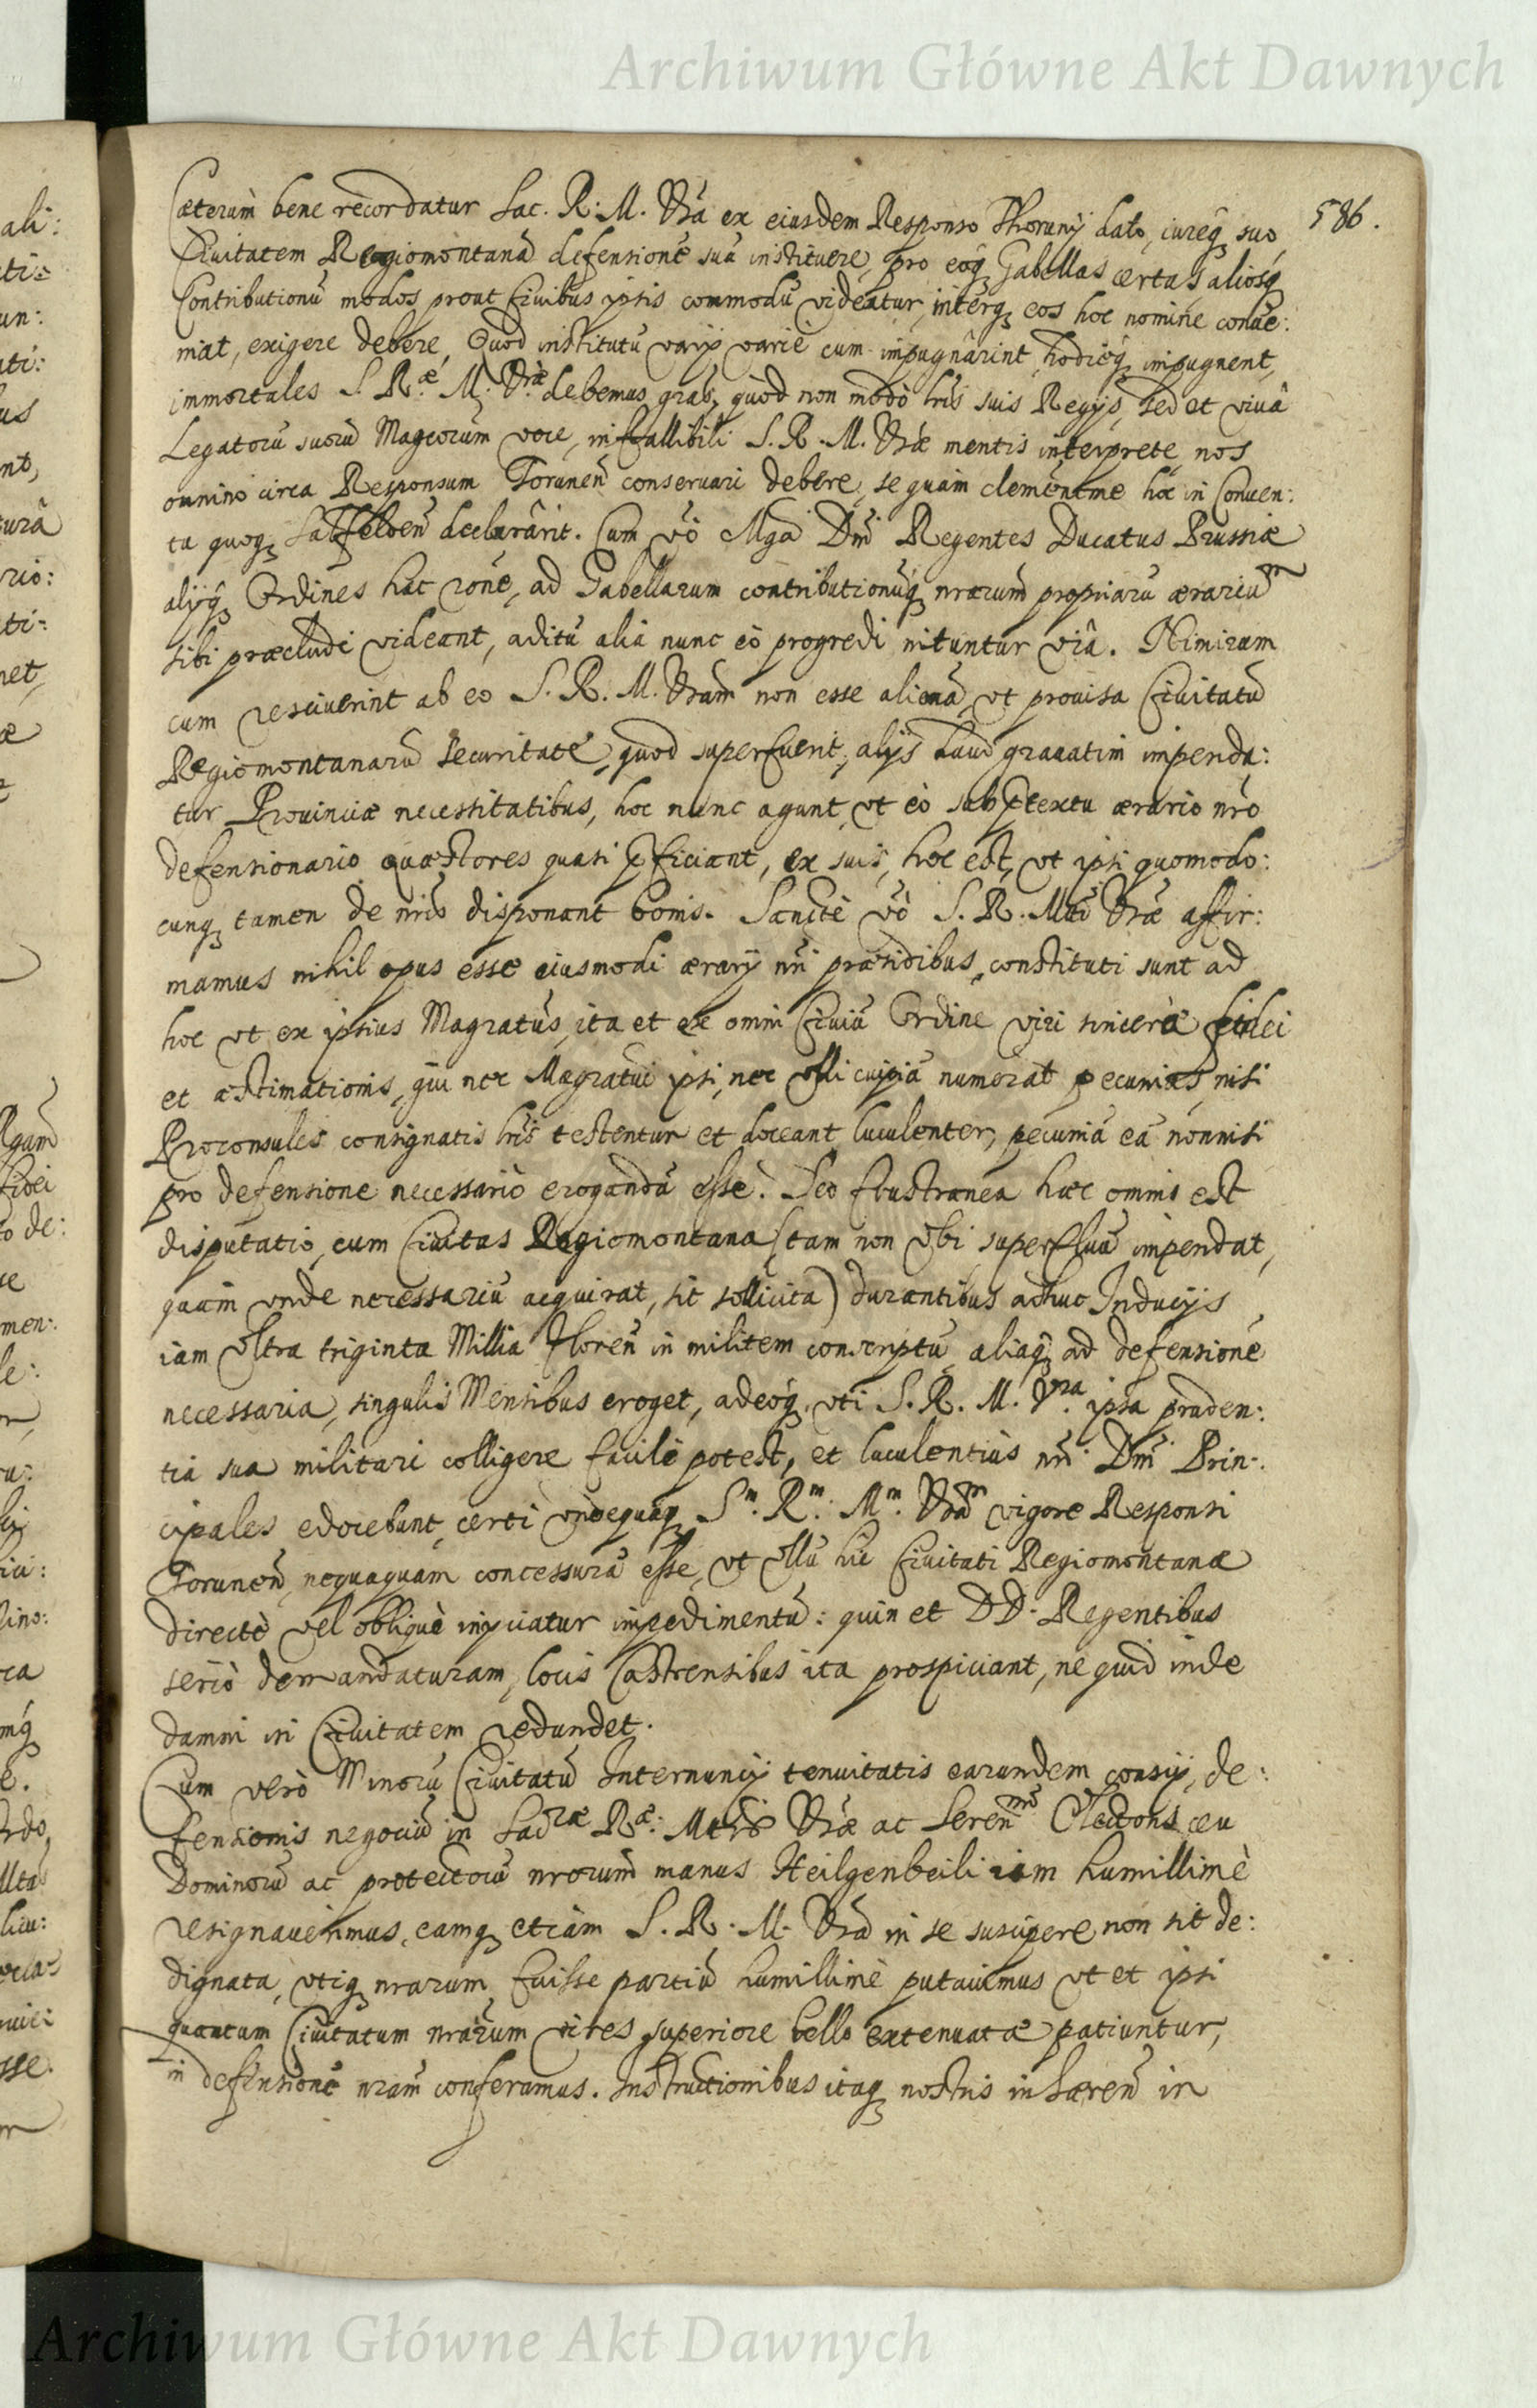 Archiwum Główne Akt Dawnych
586.
Cæterùm bene recordatur Sac. R. M. Vrã ex eiusdem Responso Thorunij dato, iureq; suo
Civitatem Regiomontanã defensionẽ suã instituere, pro eoq; Gabellas certas aliosq;
Contributionũ modos prout Civibus ipsis commodũ videatur, interq; eos hoc nomine conue:
niat, exigere debere, Quod institutũ varij variè cum impugnârint, hodieq; impugnent,
immortales S. Ræ. M. Vræ debemus grãs, quòd non modò lrĩs suis Regijs, sed et vivâ
Legatorũ suorũ Magcorum voce, infallibili S. R. M. Vræ mentis interprete, nos
omnino circa Responsum Torunen̄ conseruari debere, se quàm clementme hoc in Conuen:
tu quoq; Salfelden̄ declarârit. Cum vò Mga Dnĩ Regentes Ducatus Prussiæ
alijq; Ordines hac rõne, ad Gabellarum contributionũq; nrarum propriarũ ærariũm
sibi præcludi videant, aditũ aliâ nunc eò progredi nituntur viâ. Nimirum
cum resciuerint ab eo S. R. M. Vram non esse alienã, vt prouisa Civitatũ
Regiomontanarũ securitate, quod superfuerit, alijs haud grauatim impenda:
tur Prouinciæ necessitatibus, hoc nunc agunt, vt eò sub prtextu ærario nrõ
defensionario quæstores quasi pficiant, ex suis, hoc est, vt ipsi quomodo:
cunq; tamen de nrĩs disponant bonis. Sanctè vò S. R. Mti Vræ affir:
mamus nihil opus esse eiusmodi ærarij nrĩ præsidibus, constituti sunt ad
hoc vt ex ipsius Magratus, ita et ex omni Civiũ Ordine viri sinceræ fidei
et æstimationis, qui nec Magratui ipsi, nec vlli cuipiã numerat pecunias, nisi
Proconsules consignatis lrĩs testentur et doceant luculenter, pecuniã eã nonnisi
pro defensione necessariò erogandã esse. Sed frustranea hæc omnis est
disputatio, cum Civitas Regiomontana (tam non vbi superfluã impendat,
quàm vnde necessariũ acquirat, sit sollicita) durantibus adhuc Inducijs
iam vltra triginta Millia Floren̄ in militem conscriptũ aliaq; ad defensionẽ
necessaria, singulis Mensibus eroget, adeoq; vti S. R. M. Vra. ipsa pruden:
tia sua militari colligere facilè potest, et luculentiùs nrĩ Dnĩ Prin:
cipales edocebunt, certi vndequaq; Sm. Rm. Mm. Vram vigore Responsi
Torunen̄, nequaquam concessurã esse, vt vllũ hic Civitati Regiomontanæ
directè vel obliquè inijciatur impedimentũ: quin et DD. Regentibus
seriò demandaturam, locis Castrensibus ita prospiciant, ne quid inde
damni in Civitatem redundet.
Cum verò Minorũ Civitatũ Internuncij tenuitatis earundem conscij, de:
fensionis negociũ in Sacræ Ræ: Mtis Vræ ac Serenmi Electoris, ceu
Dominorũ ac protectorũ nrorum manus Heilgenbeili iam humillimè
resignauerimus, eamq; etiam S. R. M. Vrã in se suscipere non sit de:
dignata, vtiq; nrarum fuisse partiũ humillimè putauimus vt et ipsi
quantum Civitatum nrarum vires superiore bello extenuatæ patiuntur,
in defensionẽ nram conferamus. Instructionibus itaq; nostris inhæren̄ in
Archiwum Główne Akt Dawnych